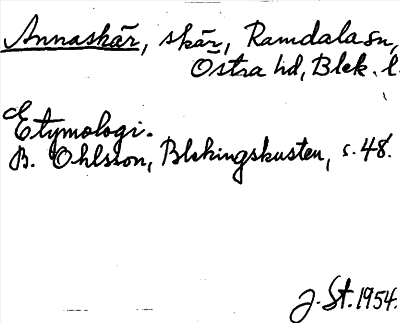 Annaskär, skär, Ramdala sn,
Östra hd, Blek. l.
Etymologi.
B. Ohlsson, Blekingskusten, s. 48.
J. St. 1954.